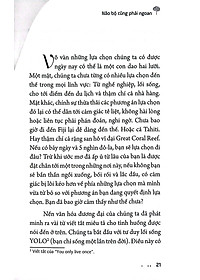 Não bộ cũng phải ngoan
Vô vàn những lựa chọn chúng ta có được
ngày nay có thể là một con dao hai lưỡi.
Một mặt, chúng ta chưa từng có nhiều lựa chọn đến thế
trong mọi lĩnh vực: Từ nghề nghiệp, lối sống, cho
tới trang phục, địa điểm, thậm chí cả nhà hàng.
Mặt khác, chính sự thừa thãi các phương án lựa chọn đó
lại có thể dẫn tới cảm giác tê liệt, không hài lòng hoặc
liên tục phải phán đoán, nghi ngờ. Chưa bao
giờ đi đến Fiji lại dễ dàng đến thế. Hoặc cả Tahiti.
Hay thậm chí cả rạng san hô vĩ đại Great Coral Reef.
Nếu có bảy ngày và 5 nghìn đô la, bạn sẽ lựa chọn thế
nào? Trừ khi ước mơ đã ấp ủ từ lâu của bạn là được
đặt chân tới một trong những nơi đó, nếu không bạn
sẽ băn khăn ngồi xuống, bối rối và lắc đầu, có cảm
giác bị lôi kéo về những lựa chọn cho kỳ nghỉ mà mình
vừa từ bỏ so với phương án bạn đang quyết định lựa
chọn. Bạn đã bao giờ cảm thấy như thế chưa?
Nền văn hóa đương đại của chúng ta đã phát
minh ra vài từ viết tắt miêu tả cho tình huống được
nói đến ở trên. Chúng ta bắt đầu với tư duy lối sống
YOLO¹ (bạn chỉ sống một lần trên đời). Điều này có
¹ Viết tắt của "You only live once".
21